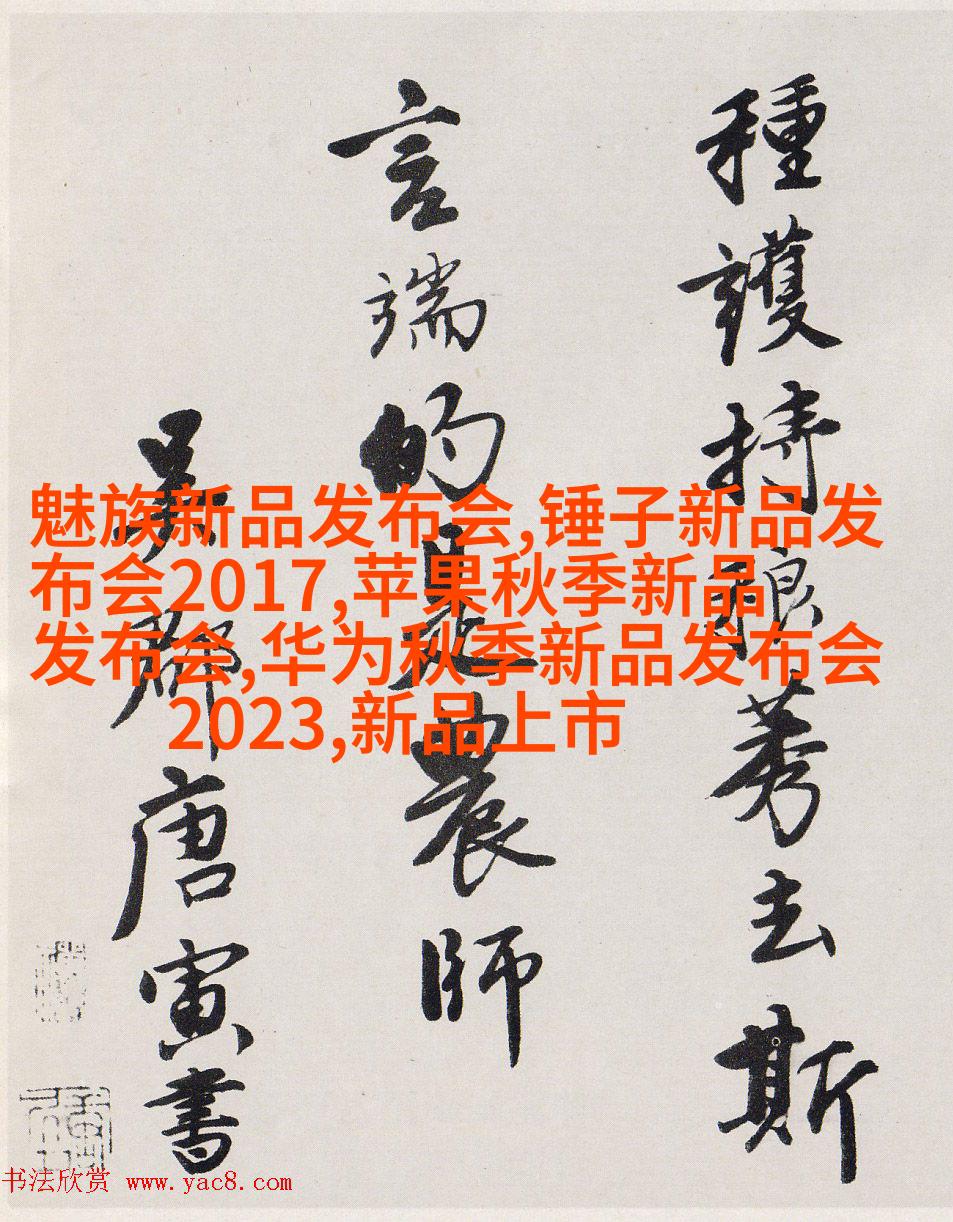 種護持稂莠去斯
言端的是農師
吳郡唐寅書
魅族新品发布会,锤子新品发
布会2017,苹果秋季新品
发布会,华为秋季新品发布会
2023,新品上市
书法欣赏 www.yac8.com